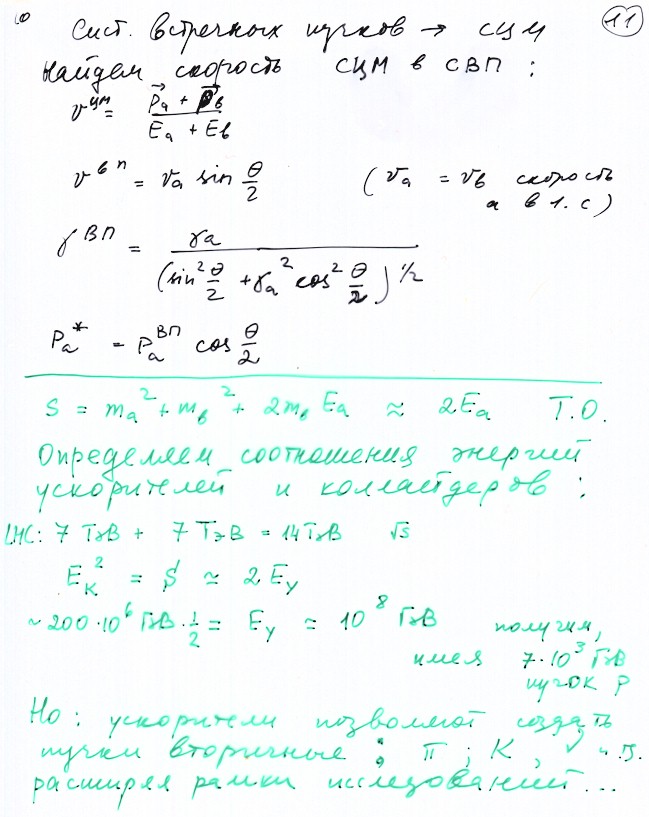 11
Сист. встречных пучков → СЦМ
Найдем скорость СЦМ в СВП :
v^цм = (P⃗a + P⃗в) / (Ea + Eв)
v^вп = va sin θ/2 (va = vв скорость
a в л.с)
γ^ВП = γa / (sin² θ/2 + γa² cos² θ/2)^1/2
Pa* = Pa^ВП cos θ/2
S = ma² + mв² + 2mв Ea ≈ 2Ea Т.О.
Определяем соотношения энергий
ускорителей и коллайдеров :
LHC: 7 ТэВ + 7 ТэВ = 14 ТэВ √s
Eк² = S ≃ 2Eу
~200·10⁶ ГэВ · 1/2 = Eу = 10⁸ ГэВ получим,
имея 7·10³ ГэВ
пучок P
Но : ускорители позволяют создать
пучки вторичные : π ; K ,
расширяя рамки исследований...